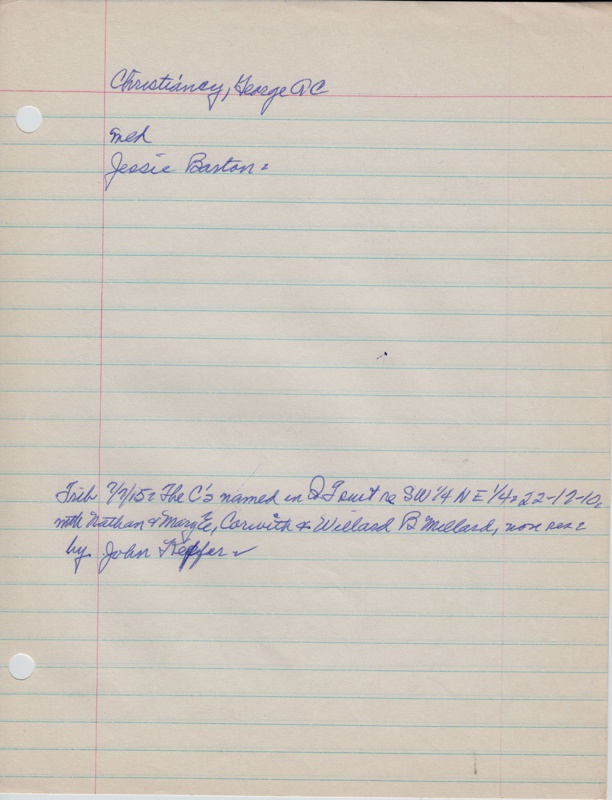 Christiancy, George A C
med
Jessie Barton.
Trib 7/7/15: The C's named in Q T suit re SW 1/4 N E 1/4, 22-12-10,
with Nathan & Mary E, Corwith & Willard B Millard, non res.
by John Kepfer